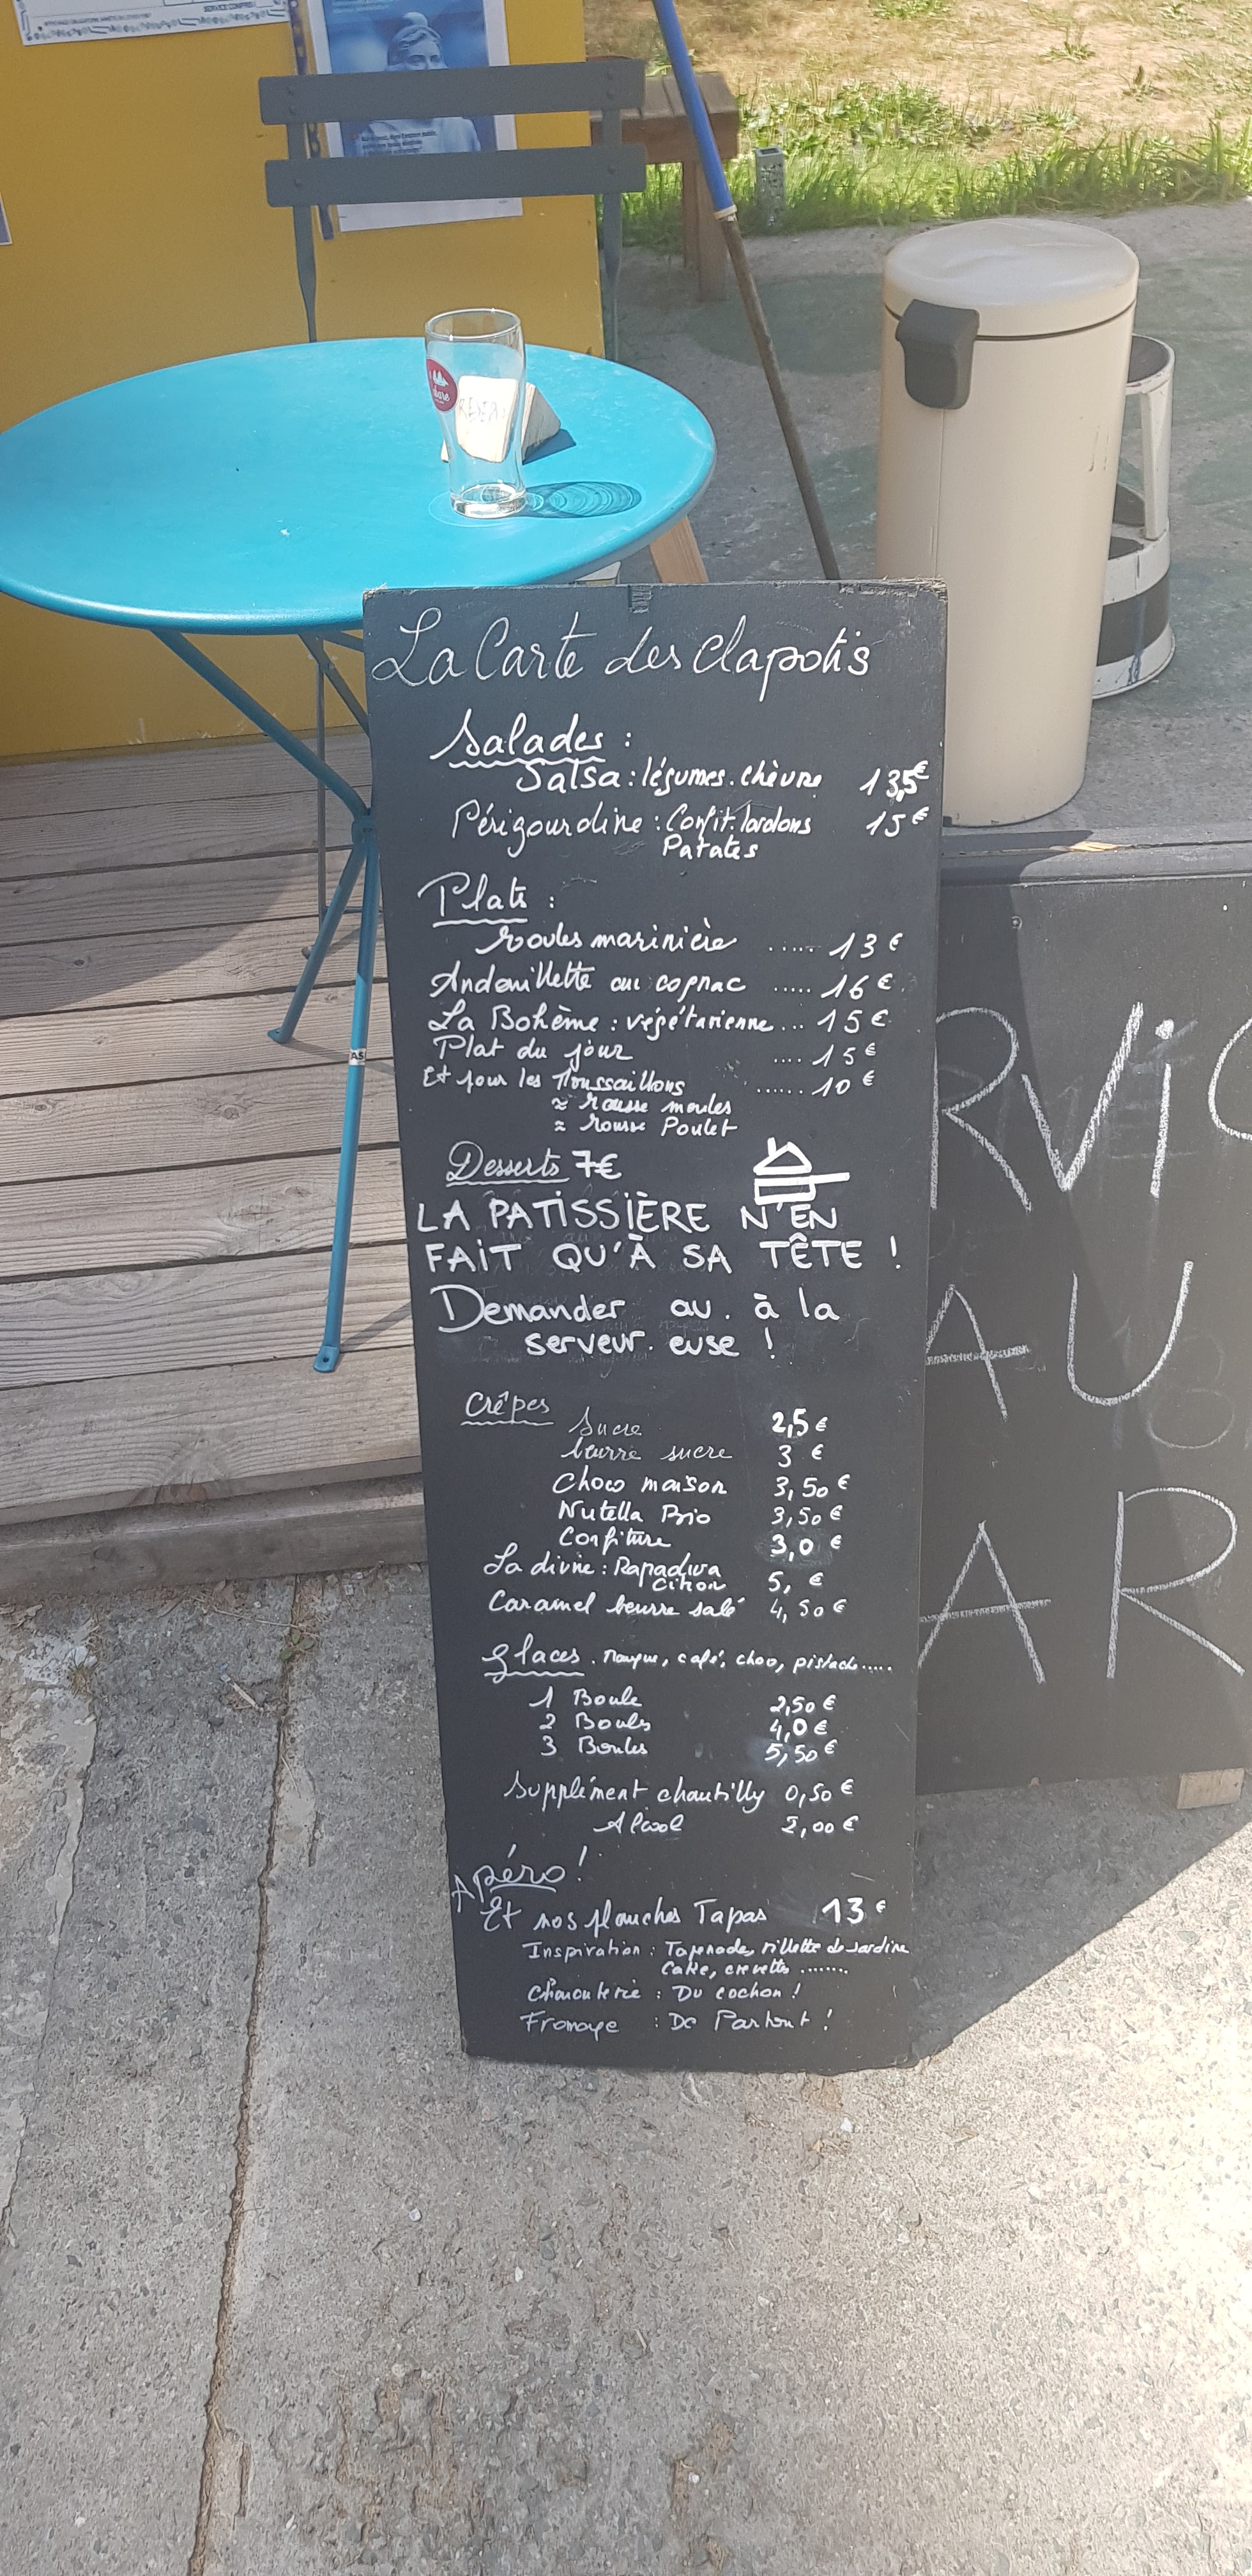 SERVICE COMPRIS
La Carte des Clapotis
Salades :
Salsa : légumes. chèvre 13,5€
Périgourdine : Confit. lardons 15€
Patates
Plats :
Moules marinière ..... 13 €
Andouillette au cognac ..... 16 €
La Bohème : végétarienne ... 15 €
Plat du jour .... 15 €
Et pour les Moussaillons ...... 10 €
≈ Mousse moules
≈ Mousse Poulet
Desserts 7€
LA PATISSIÈRE N'EN
FAIT QU'À SA TÊTE !
Demander au. à la
serveur. euse !
Crêpes
Sucre 2,5 €
beurre sucre 3 €
Choco maison 3,50 €
Nutella Bio 3,50 €
Confiture 3,0 €
La divine : Rapadura
Citron 5, €
Caramel beurre salé 4,50 €
Glaces . Mangue, café, choco, pistache.....
1 Boule 2,50 €
2 Boules 4,0 €
3 Boules 5,50 €
Supplément chantilly 0,50 €
Alcool 2,00 €
Apéro !
Et nos planches Tapas 13 €
Inspiration : Tapenade, rillette de sardine
Cake, crevettes ........
Charcuterie : Du cochon !
Fromage : De Partout !
RVIC
AU
AR